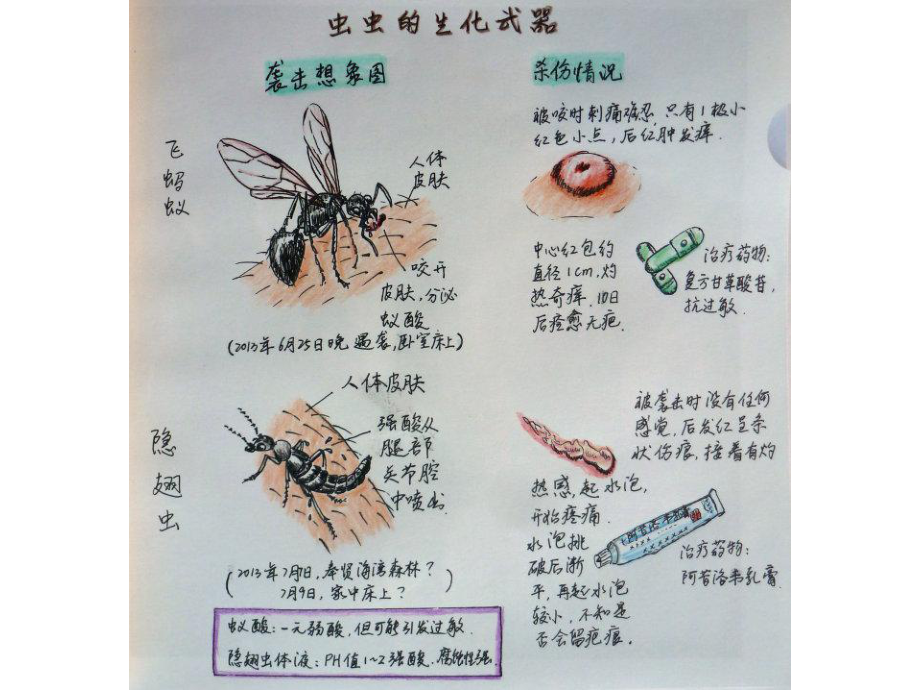 虫虫的生化武器
袭击想象图
杀伤情况
飞蚂蚁
人体
皮肤
咬开
皮肤,分泌
蚁酸
(2013年6月25日晚 遇袭,卧室床上)
被咬时刺痛难忍,只有1极小
红色小点,后红肿发痒.
中心红包约
直径1cm,灼
热奇痒.10日
后痊愈无疤.
治疗药物:
复方甘草酸苷,
抗过敏.
隐翅虫
人体皮肤
强酸从
腿部
关节腔
中喷出
(2013年7月7日,奉贤海湾森林?
7月9日,家中床上?)
被袭击时没有任何
感觉,后发红呈条
状伤痕,接着有灼
热感,起水泡,
开始疼痛.
水泡挑
破后渐
平,再起水泡
较小,不知是
否会留疤痕.
治疗药物:
阿昔洛韦乳膏
蚁酸:一元弱酸,但可能引发过敏.
隐翅虫体液:PH值1~2强酸.腐蚀性强.